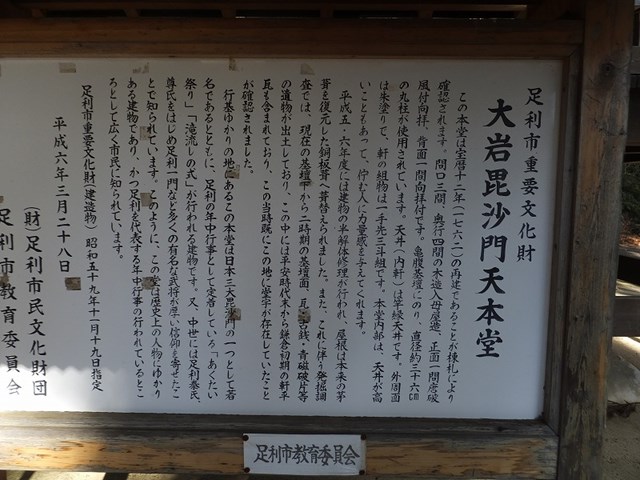 足利市重要文化財
大岩毘沙門天本堂
この本堂は宝暦十二年(一七六二)の再建であることが棟札により
確認されます。間口三間、奥行四間の木造入母屋造、正面一間唐破
風付向拝、背面一間向拝付です。亀腹基壇にのり、直径約三十六cm
の丸柱が使用されています。天井(内軒)は竿縁天井です。外周面
は朱塗りで、軒の組物は一手先三斗組です。本堂内部は、天井が高
いこともあって、佇む人に力量感を与えてくれます。
平成五・六年度には建物の半解体修理が行われ、屋根は本来の茅
葺を復元した銅板葺へ葺替えられました。また、これに伴う発掘調
査では、現在の基壇下から二時期の基壇面、瓦・古銭、青磁破片等
の遺物が出土しており、この中には平安時代末から鎌倉初期の軒平
瓦も含まれており、この当時既にこの地に堂宇が存在していたこと
が確認されました。
行基ゆかりの地にあるこの本堂は日本三大毘沙門の一つとして著
名であるとともに、足利の年中行事として定着している「あくたい
祭り」「滝流しの式」が行われる建物です。又、中世には足利泰氏、
尊氏をはじめ足利一門など多くの有名な武将が厚い信仰を寄せたこ
とで知られています。このように、この堂は歴史上の人物とゆかり
ある建物であり、かつ足利を代表する年中行事の行われているとこ
ろとして広く市民に知られています。
足利市重要文化財(建造物)昭和五十九年十一月十九日指定
平成六年三月二十八日
(財)足利市民文化財団
足利市教育委員会
足利市教育委員会